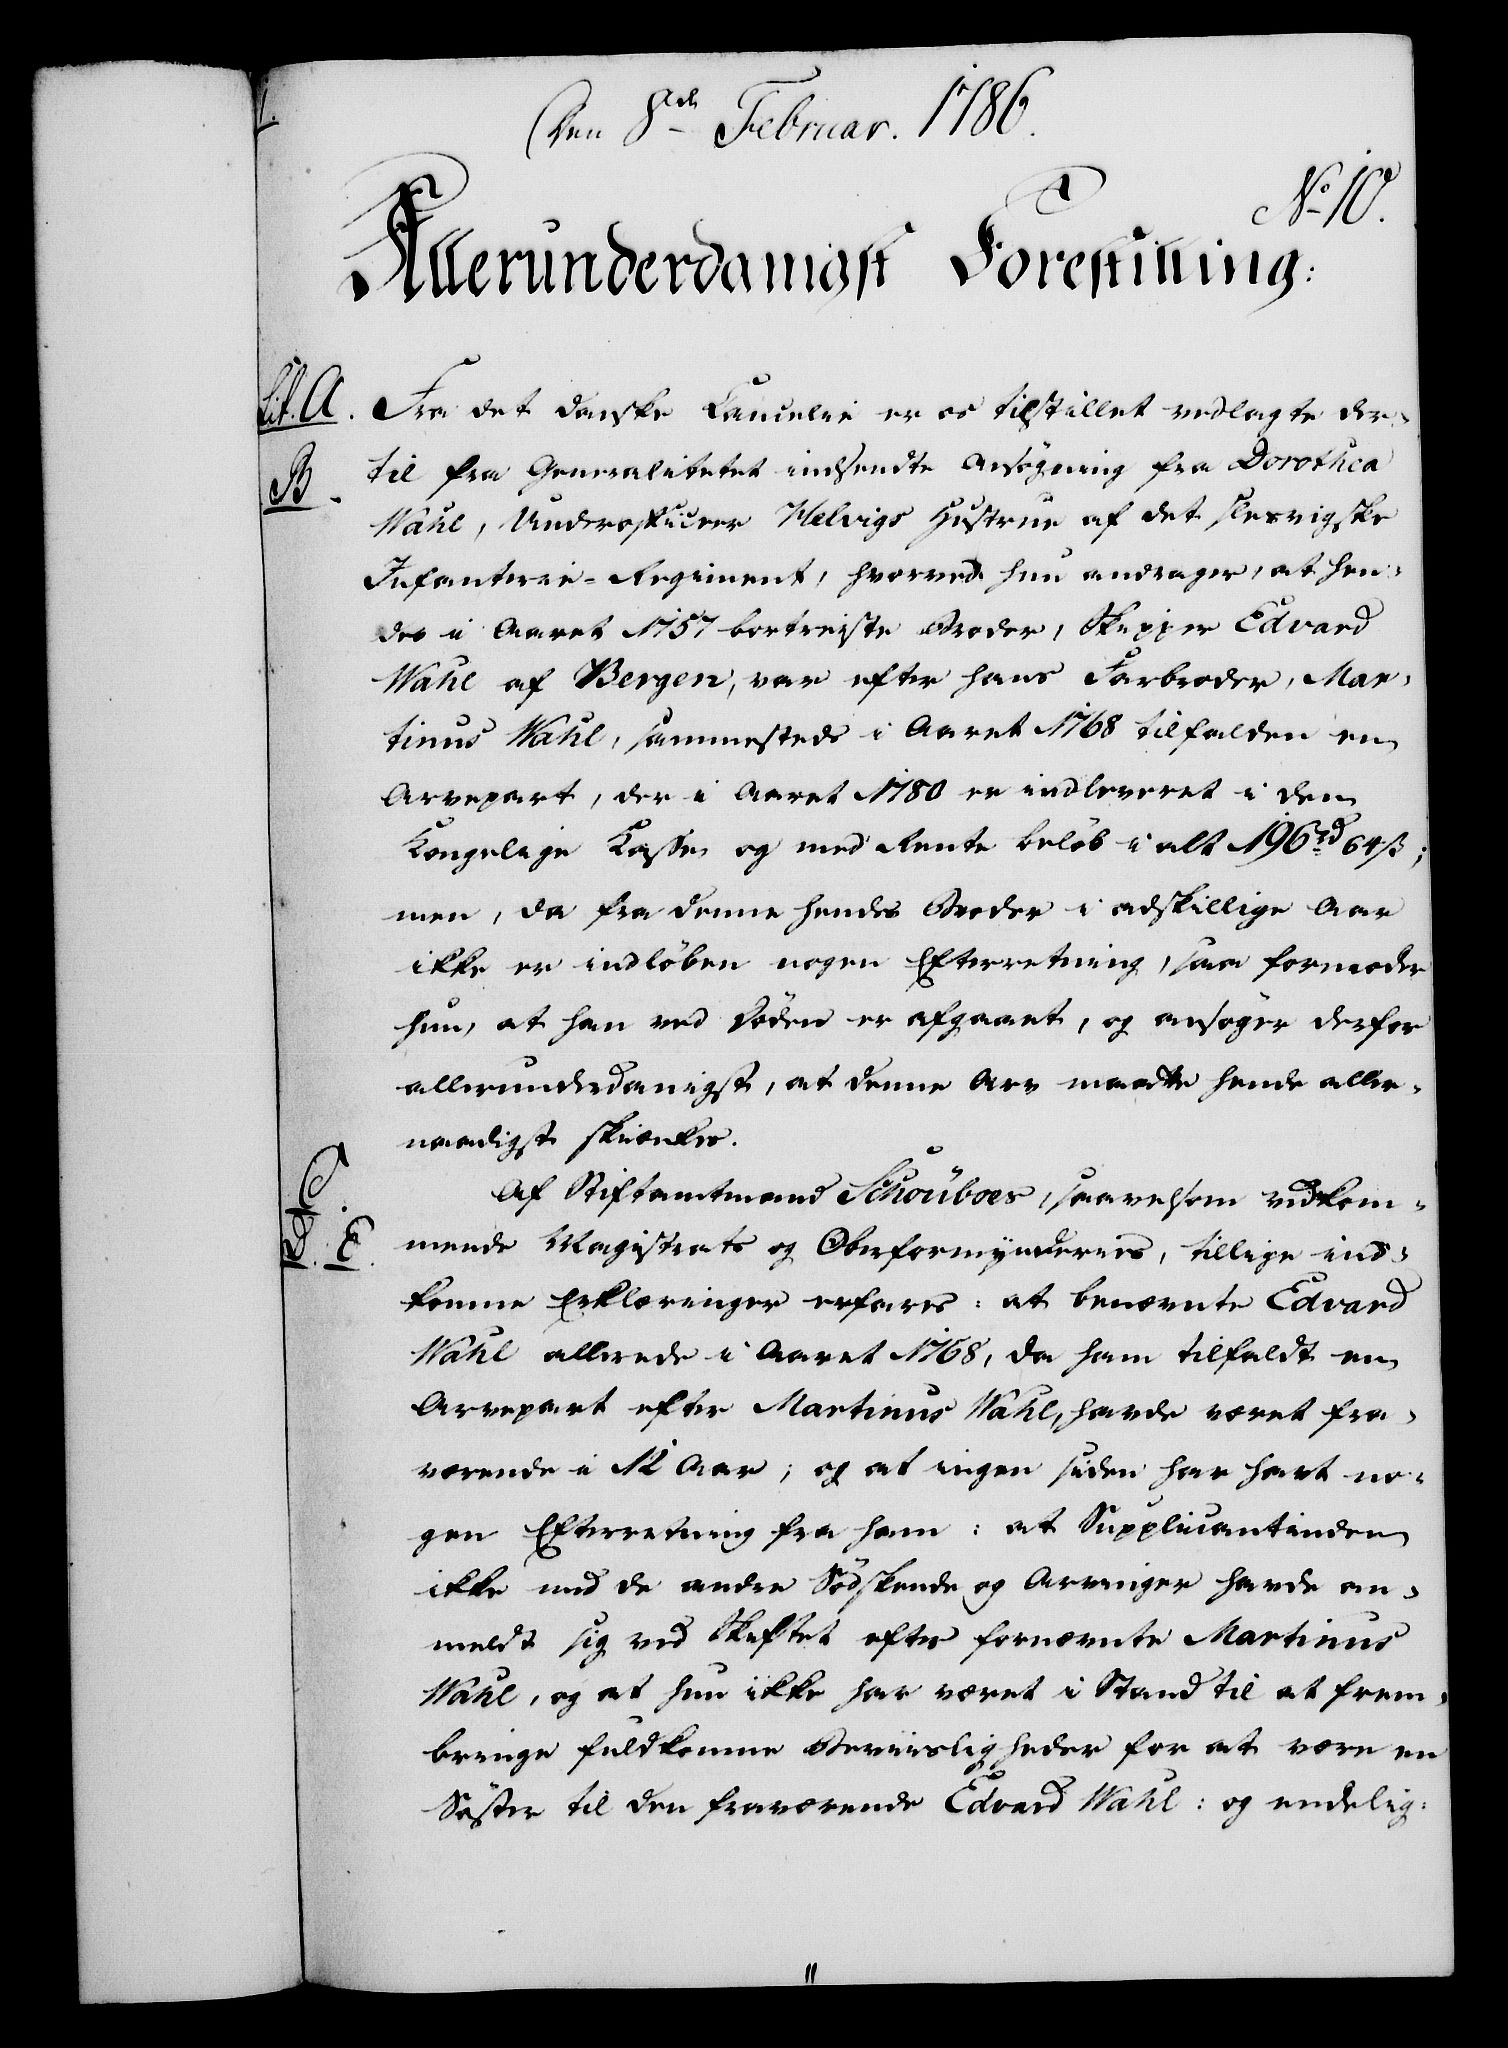 Den 8de Februar. 1786.
No 10.
Allerunderdanigst Forestilling:
Lit. A. Fra det danske Cancelie er os tilstillet vedlagte der-
B. til fra Generalitetet indsendte Ansøgning fra Dorothea
Wahl, Underofficeer Helvigs Hustrue af det slesvigske
Infanterie-Regiment, hvorved hun andrager, at hen-
des i Aaret 1757 bortreiste Broder, Skipper Edvard
Wahl af Bergen, var efter hans Farbroder, Mar-
tinus Wahl, sammesteds i Aaret 1768 tilfalden en
Arvepart, der i Aaret 1780 er indleveret i den
Kongelige Kasse og med Rente beløb i alt 196 rd 64 ß;
men, da fra denne hendes Broder i adskillige Aar
ikke er indløben nogen Efterretning, saa formoder
hun, at han ved Døden er afgaaet, og ansøger derfor
allerunderdanigst, at denne Arv maatte hende aller-
naadigst skienkes.
Af Stiftamtmand Schoüboes, saavelsom vedkom-
E. mende Magistrats og Overformynderies, tillige ind-
komne Erklæringer erfares: at benævnte Edvard
Wahl allerede i Aaret 1768, da ham tilfaldt en
Arvepart efter Martinus Wahl, havde været fra-
værende i 12 Aar; og at ingen siden har havt no-
gen Efterretning fra ham: at Supplicantinden
ikke med de andre Södskende og Arvinger havde an-
meldt sig ved Skiftet efter fornævnte Martinus
Wahl, og at hun ikke har været i Stand til at frem-
bringe fuldkomne Beviisligheder for at være en
Søster til den fraværende Edvard Wahl: og endelig: